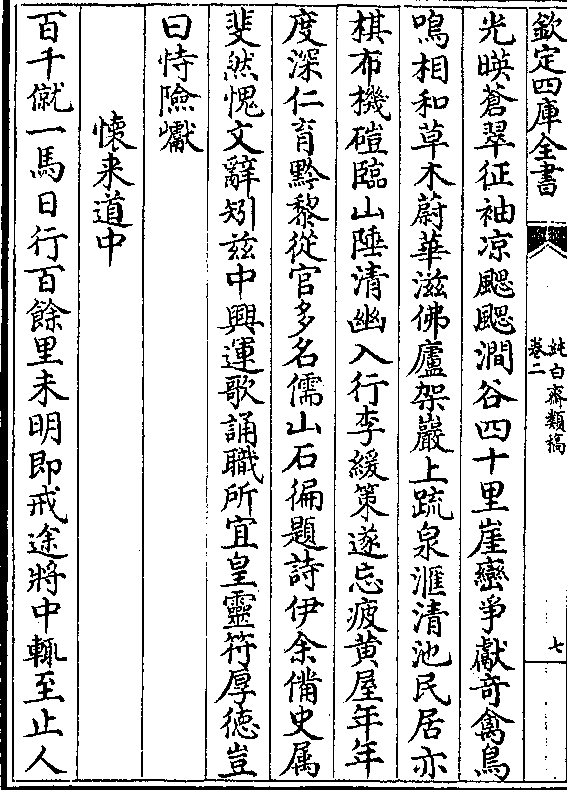 欽定四庫全書
純白齋類稿
卷二
七
光暎蒼翠征袖凉颸颸澗谷四十里崖巒爭獻奇禽鳥
鳴相和草木蔚華滋佛廬架巖上䟽泉滙清池民居亦
棋布機磑臨山陲清幽入行李緩策遂忘疲黄屋年年
度深仁育黔黎從官多名儒山石徧題詩伊余備史属
斐然愧文辭矧兹中興運歌誦職所宜皇靈符厚徳豈
曰恃險巇
懐来道中
百千僦一馬日行百餘里未明即戒途將中輒至止人